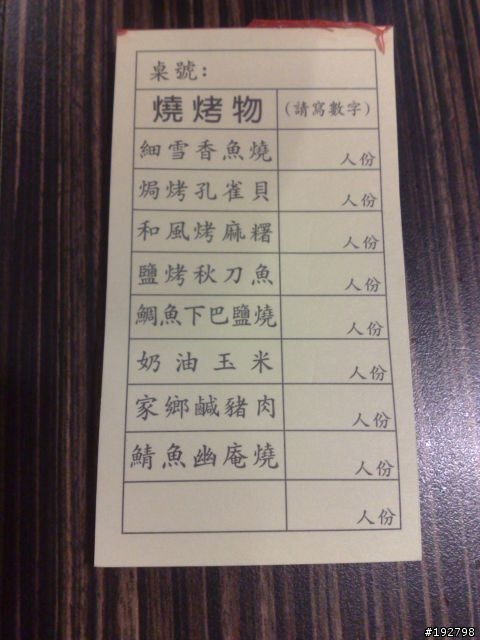 桌號:
燒烤物 (請寫數字)
細雪香魚燒 人份
焗烤孔雀貝 人份
和風烤麻糬 人份
鹽烤秋刀魚 人份
鯛魚下巴鹽燒 人份
奶油玉米 人份
家鄉鹹豬肉 人份
鯖魚幽庵燒 人份
人份
#192798